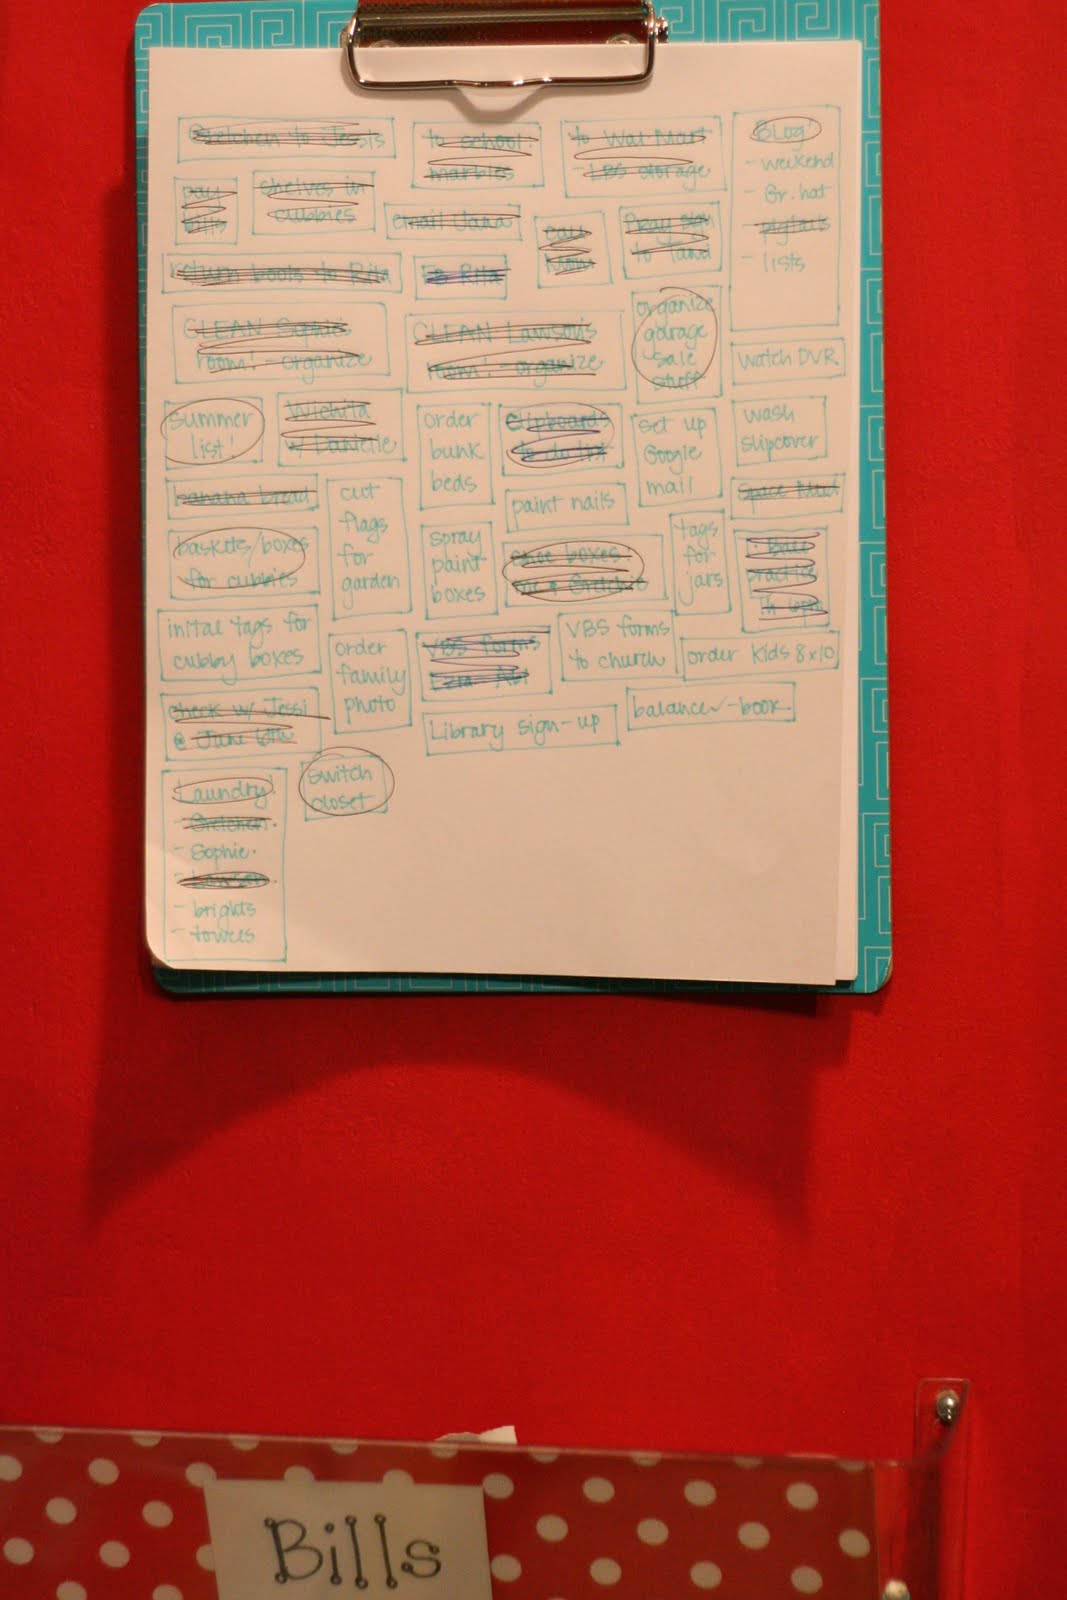 Gretchen to Jessi's
to school:
marbles
to Wal Mart
- LBS storage
BLOG!
- weekend
- Gr. hat
- pigtails
- lists
pay
bills
shelves in
cubbies
email Jana
call
Mom
to
return boots to Rita
to Rita
CLEAN Sophie's
room! - organize
CLEAN Lawson's
room! - organize
organize
garage
sale
stuff
watch DVR
summer
list!
Wichita
w/ Danielle
order
bunk
beds
clipboards
to do list
set up
Google
mail
wash
slipcover
banana bread
cut
flags
for
garden
paint nails
Space Maid
baskets/boxes
for cubbies
spray
paint
boxes
shoe boxes!
tags
for
jars
Ball
practice
inital tags for
cubby boxes
order
family
photo
VBS forms
VBS forms
to church
order kids 8x10
check w/ Jessi
@ June 6th
Library sign-up
balance ✓-book
Laundry
- Gretchen
- Sophie
- Lawson
- brights
- towels
switch
closet
Bills